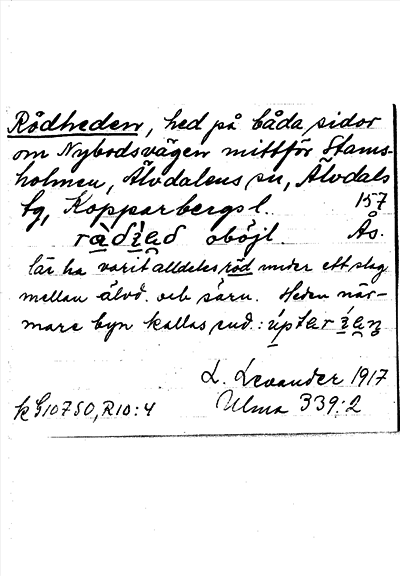 Rödheden, hed på båda sidor
om Nybodsvägen mittför Stams-
holmen, Älvdalens sn, Älvdals
tg, Kopparbergs l. 157
rä̀di̯ed oböjl. Ås.
lär ha varit alldeles röd under ett slag
mellan älvd. och särn. Heden när-
mare byn kallas
L. Levander 1917
k G10750, R10:4 Ulma 339:2